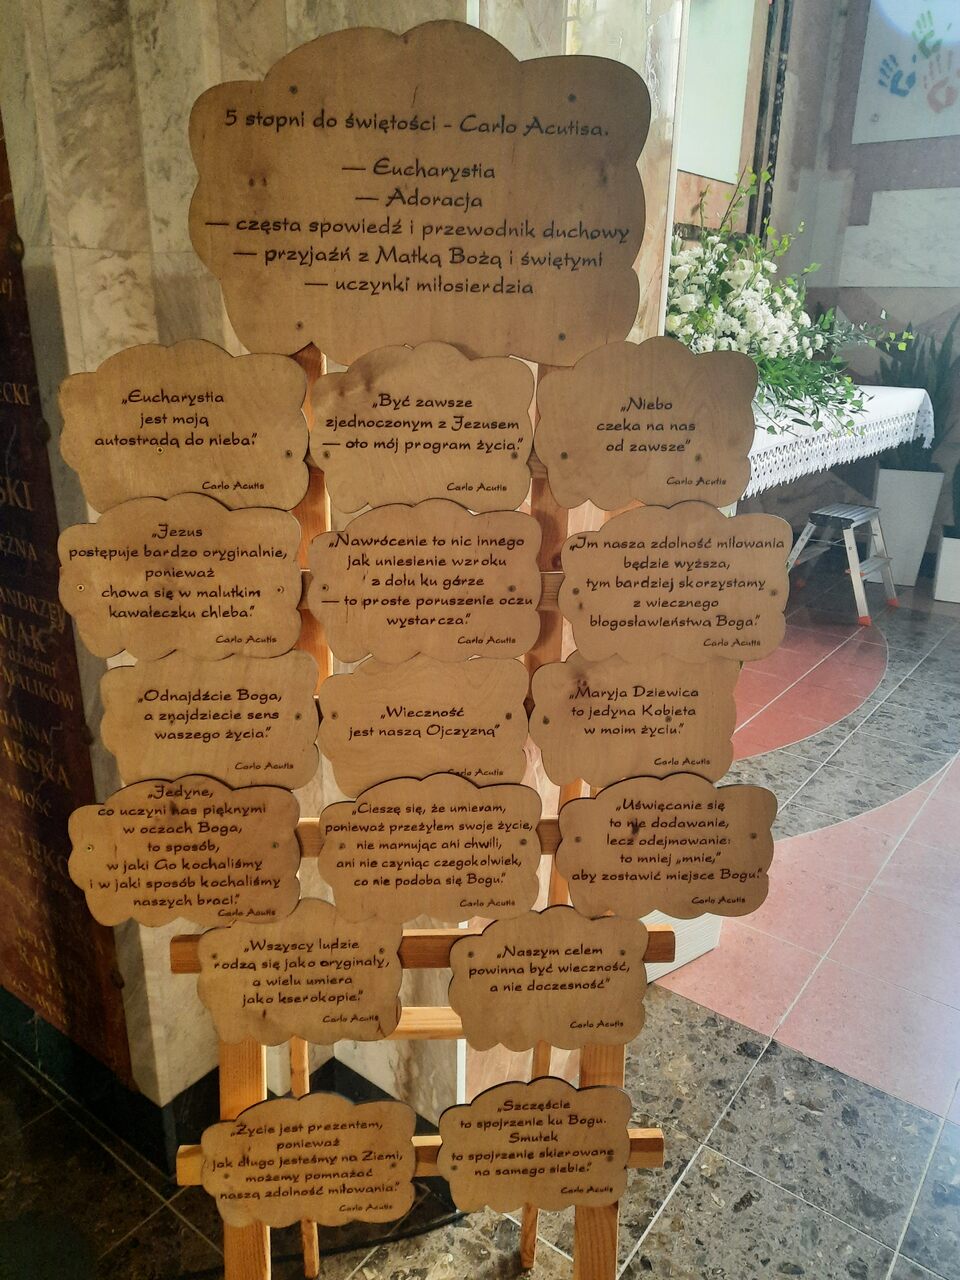 5 stopni do świętości - Carlo Acutisa.
— Eucharystia
— Adoracja
— częsta spowiedź i przewodnik duchowy
— przyjaźń z Matką Bożą i świętymi
— uczynki miłosierdzia
„Eucharystia
jest moją
autostradą do nieba.”
Carlo Acutis
„Być zawsze
zjednoczonym z Jezusem
— oto mój program życia.”
Carlo Acutis
„Niebo
czeka na nas
od zawsze”
Carlo Acutis
„Jezus
postępuje bardzo oryginalnie,
ponieważ
chowa się w malutkim
kawałeczku chleba.”
Carlo Acutis
„Nawrócenie to nic innego
jak uniesienie wzroku
z dołu ku górze
— to proste poruszenie oczu
wystarcza.”
Carlo Acutis
„Im nasza zdolność miłowania
będzie wyższa,
tym bardziej skorzystamy
z wiecznego
błogosławieństwa Boga.”
Carlo Acutis
„Odnajdźcie Boga,
a znajdziecie sens
waszego życia.”
Carlo Acutis
„Wieczność
jest naszą Ojczyzną”
Carlo Acutis
„Maryja Dziewica
to jedyna Kobieta
w moim życiu.”
Carlo Acutis
„Jedyne,
co uczyni nas pięknymi
w oczach Boga,
to sposób,
w jaki Go kochaliśmy
i w jaki sposób kochaliśmy
naszych braci.”
Carlo Acutis
„Cieszę się, że umieram,
ponieważ przeżyłem swoje życie,
nie marnując ani chwili,
ani nie czyniąc czegokolwiek,
co nie podoba się Bogu.”
Carlo Acutis
„Uświęcanie się
to nie dodawanie,
lecz odejmowanie:
to mniej „mnie,”
aby zostawić miejsce Bogu.”
Carlo Acutis
„Wszyscy ludzie
rodzą się jako oryginały,
a wielu umiera
jako kserokopie.”
Carlo Acutis
„Naszym celem
powinna być wieczność,
a nie doczesność”
Carlo Acutis
„Życie jest prezentem,
ponieważ
jak długo jesteśmy na Ziemi,
możemy pomnażać
naszą zdolność miłowania.”
Carlo Acutis
„Szczęście
to spojrzenie ku Bogu.
Smutek
to spojrzenie skierowane
na samego siebie.”
Carlo Acutis